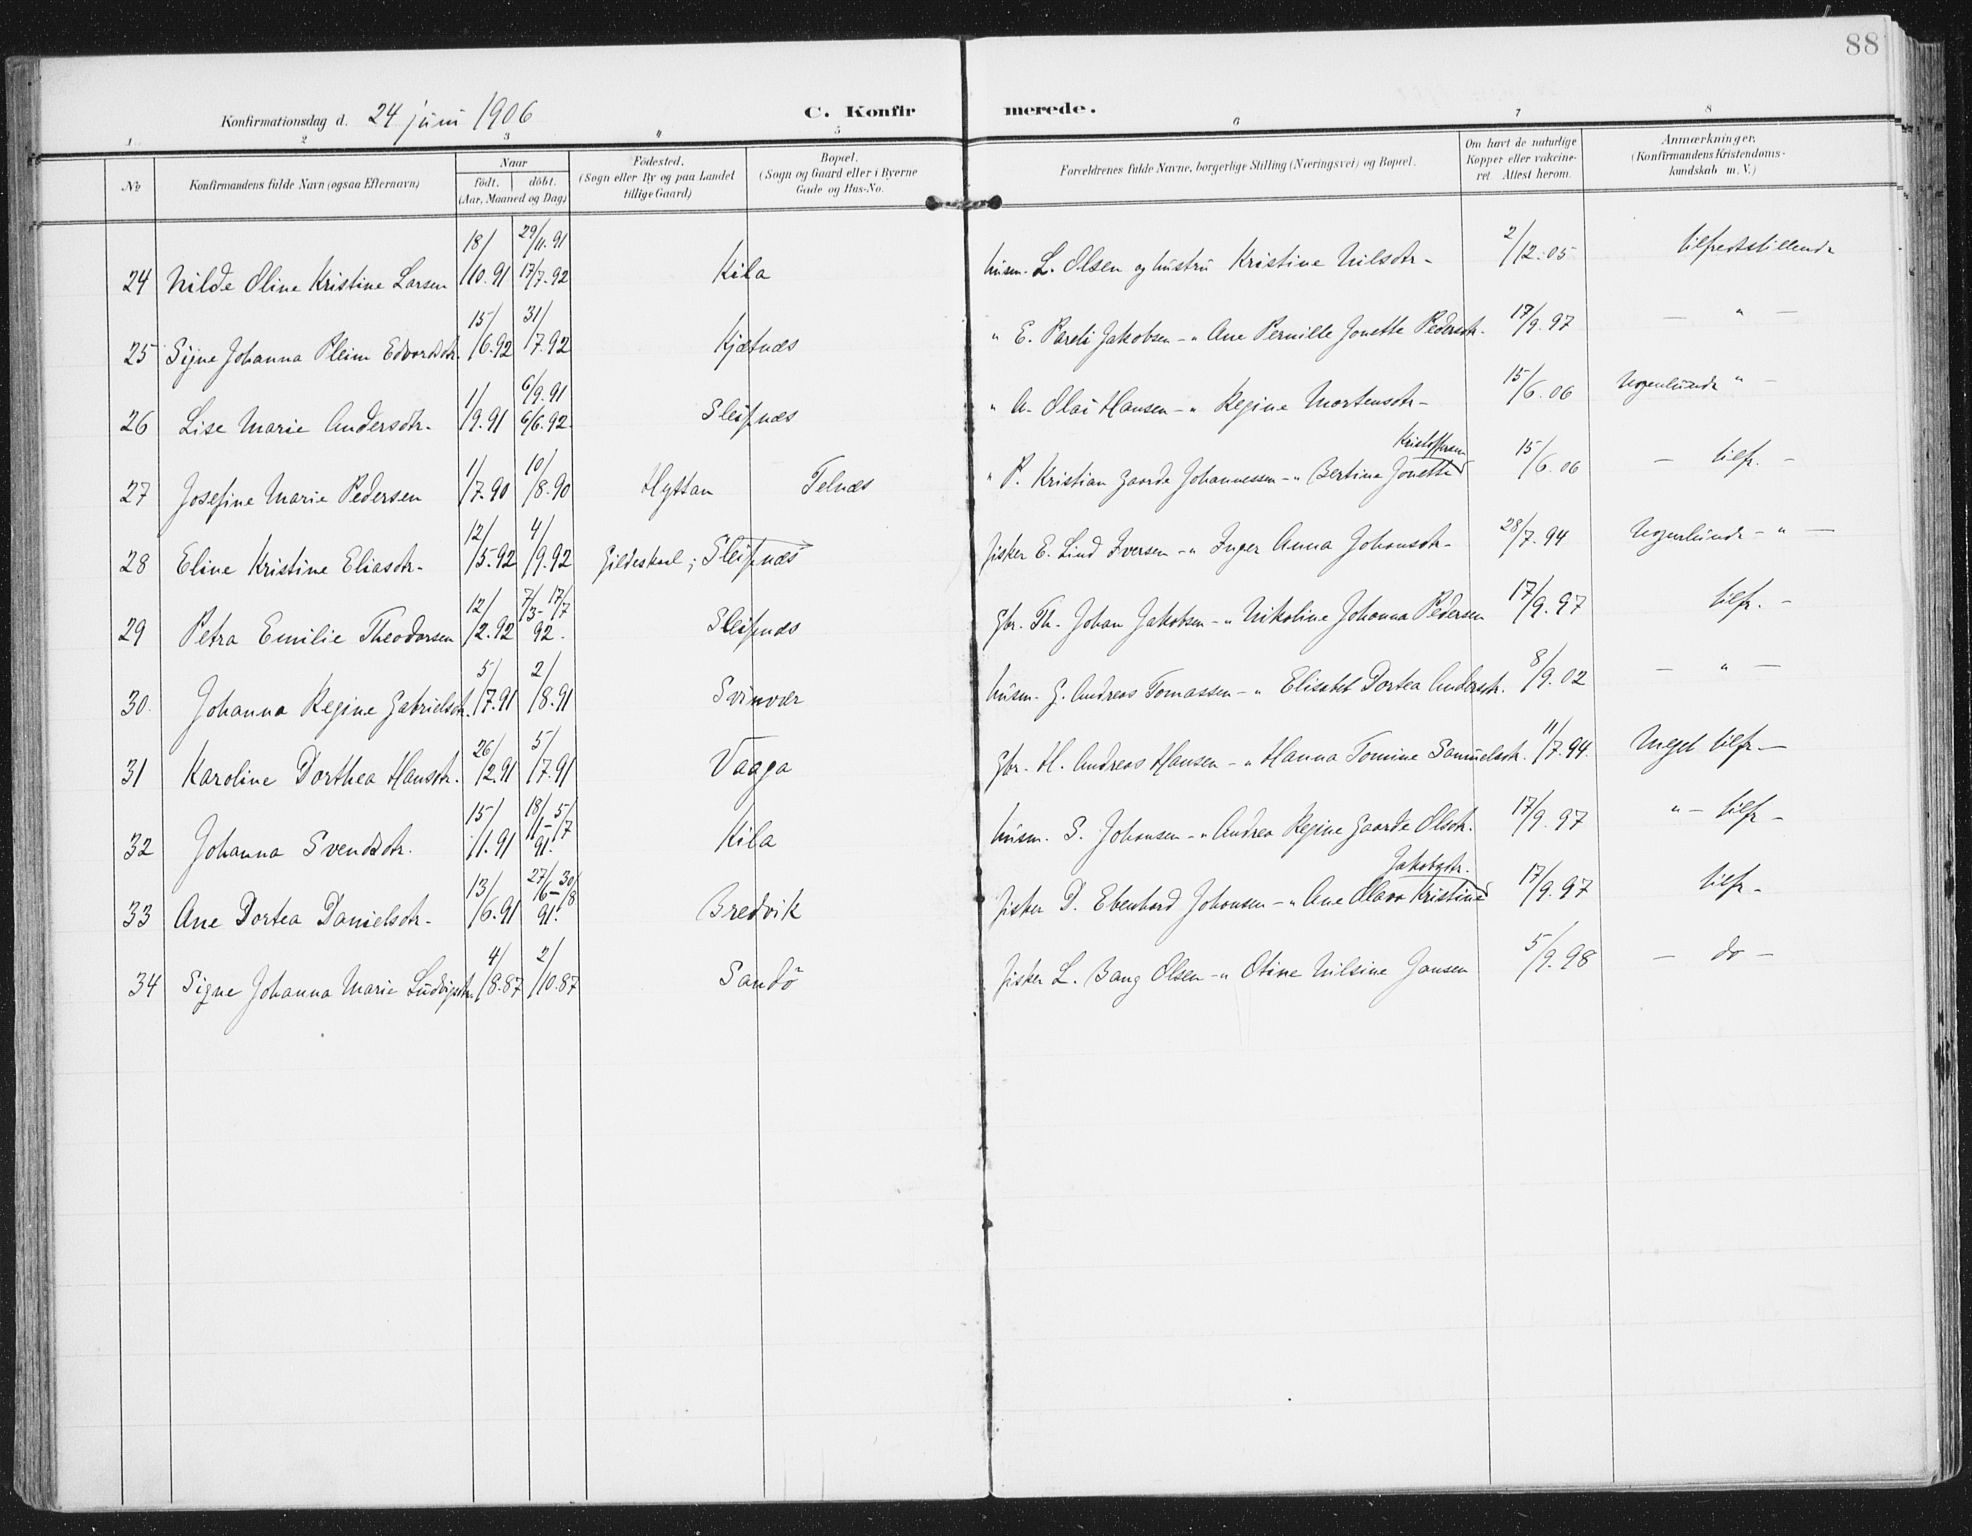 88
Konfirmationsdag d. 24 juni 1906 C. Konfir merede.
1 2 3 " 5 6 7 8
No
Konfirmandens fulde Navn (ogsaa Efternavn)
Naar
födt. döbt.
(Aar, Maaned og Dag)
Födested.
(Sogn eller By og paa Landet
tillige Gaard)
Bopæl.
(Sogn og Gaard eller i Byerne
Gade og Hus-No.
Forældrenes fulde Navne, borgerlige Stilling (Næringsvei) og Bopæl.
Om havt de naturlige
Kopper eller vakcine-
ret. Attest herom.
Anmærkninger.
(Konfirmandens Kristendoms-
kundskab m. V.)
24 Hilde Oline Kristine Larsen 18/10.91 29/11.91 17/7.92 Kila husm. L. Olsen og hustru Kristine Nilsdtr. 2/12.05 tilfredsstillende
25 Signe Johanna Pleim Edvardsdtr. 15/6.92 31/7.92 Kjætnæs " E. Pareli Jakobsen - " Ane Pernille Jonette Pedersdtr. 17/9.97 — " —
26 Lise Marie Andersdtr. 1/9.91 6/9.91 6/6.92 Sleipnæs " A. Olai Hansen - " Regine Mortensdtr. 15/6.06 "
27 Josefine Marie Pedersen 1/7.90 10/8.90 Hyttan Telnæs " P. Kristian Gaarde Johannessen - " Bertine Jonette Kristoffersen 15/6.06 — tilfr. —
28 Eline Kristine Eliasdtr. 12/5.92 4/9.92 Gildeskaal; Sleipnæs fisker E. Lind Iversen - " Inger Anna Johansdtr. 28/7.94 - " —
29 Petra Emilie Theodorsen 12/2.92 7/3 - 17/7 92. Sleipnæs Gbr. Th. Johan Jakobsen - " Nikoline Johanna Pedersen 17/9.97 tilfr. —
30 Johanna Regine Gabrielsdtr. 5/7.91 2/8.91 Svinvær husm. G. Andreas Tomassen - " Elisabet Dortea Andersdtr. 8/9.02 — " —
31 Karoline Dorthea Hansdtr. 26/2.91 5/7.91 Vaaga Gbr. H. Andreas Hansen - " Hanna Tomine Samuelsdtr. 11/7.94. Meget tilfr —
32 Johanna Svendsdtr. 15/1.91 18/1 - 5/7 91. Kila husm. S. Johansen - " Andrea Regine Gaarde Olsdtr. 17/9.97 " — tilfr —
33 Ane Dortea Danielsdtr. 13/6.91 27/6 - 30/8 91. Bredvik fisker D. Ebenhard Johansen - " Ane Olava Kristine Jakobsdtr. 17/9.97 tilfr —
34 Signe Johanna Marie Ludvigsdtr. 4/8.87 2/10.87 Sandö fisker L. Bang Olsen - " Otine Nilsine Jansen 5/9.98 — do —